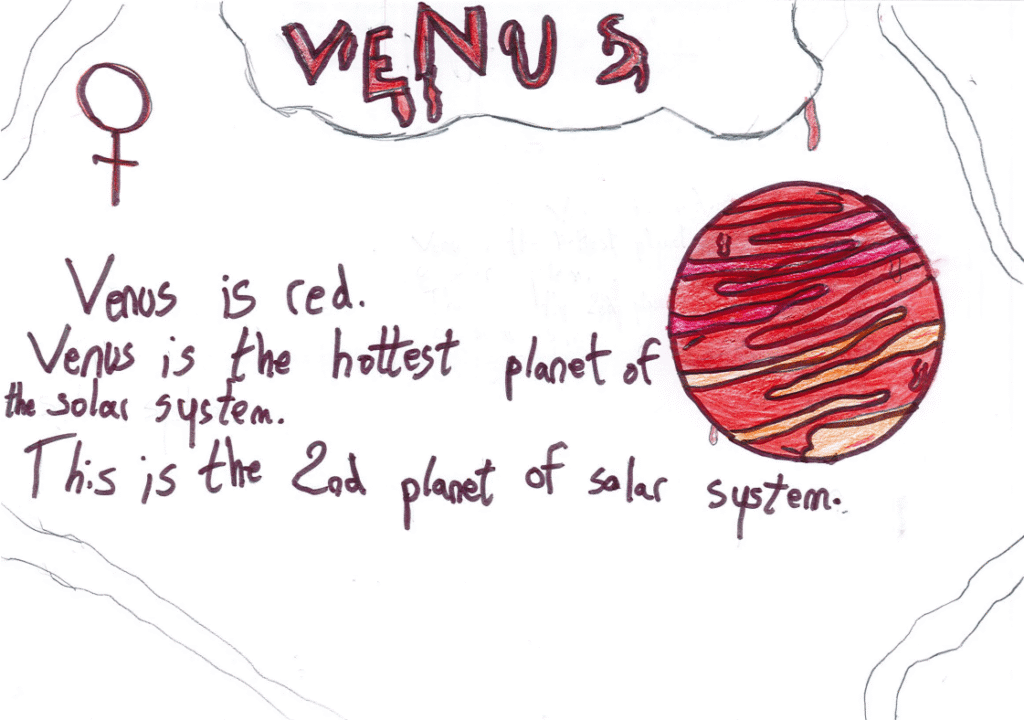 VENUS
Venus is red.
Venus is the hottest planet of
the solar system.
This is the 2nd planet of solar system.